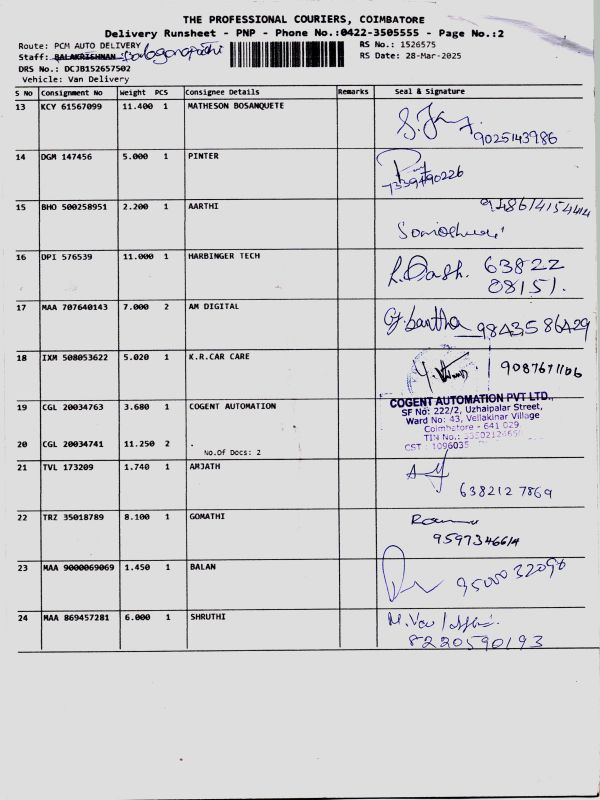 THE PROFESSIONAL COURIERS, COIMBATORE
Delivery Runsheet - PNP - Phone No.:0422-3505555 - Page No.:2
Route: PCM AUTO DELIVERY
RS No.: 1526575
Staff: BALAKRISHNAN
RS Date: 28-Mar-2025
DRS No.: DCJB152657502
Vehicle: Van Delivery
S No Consignment No Weight PCS Consignee Details Remarks Seal & Signature
13 KCY 61567099 11.400 1 MATHESON BOSANQUETE
9025143986
14 DGM 147456 5.000 1 PINTER
15 BHO 500258951 2.200 1 AARTHI
16 DPI 576539 11.000 1 HARBINGER TECH
63822
08151.
17 MAA 707640143 7.000 2 AM DIGITAL
9843586429
18 IXM 508053622 5.020 1 K.R.CAR CARE
19 CGL 20034763 3.680 1 COGENT AUTOMATION
COGENT AUTOMATION PVT LTD.,
SF No: 222/2, Uzhaipalar Street,
Ward No: 43, Vellakinar Village
Coimbatore - 641 029
TIN No.:
CST : 1096035
20 CGL 20034741 11.250 2 .
No.Of Docs: 2
21 TVL 173209 1.740 1 AMJATH
6382127869
22 TRZ 35018789 8.100 1 GOMATHI
23 MAA 9000069069 1.450 1 BALAN
24 MAA 869457281 6.000 1 SHRUTHI
8220590193